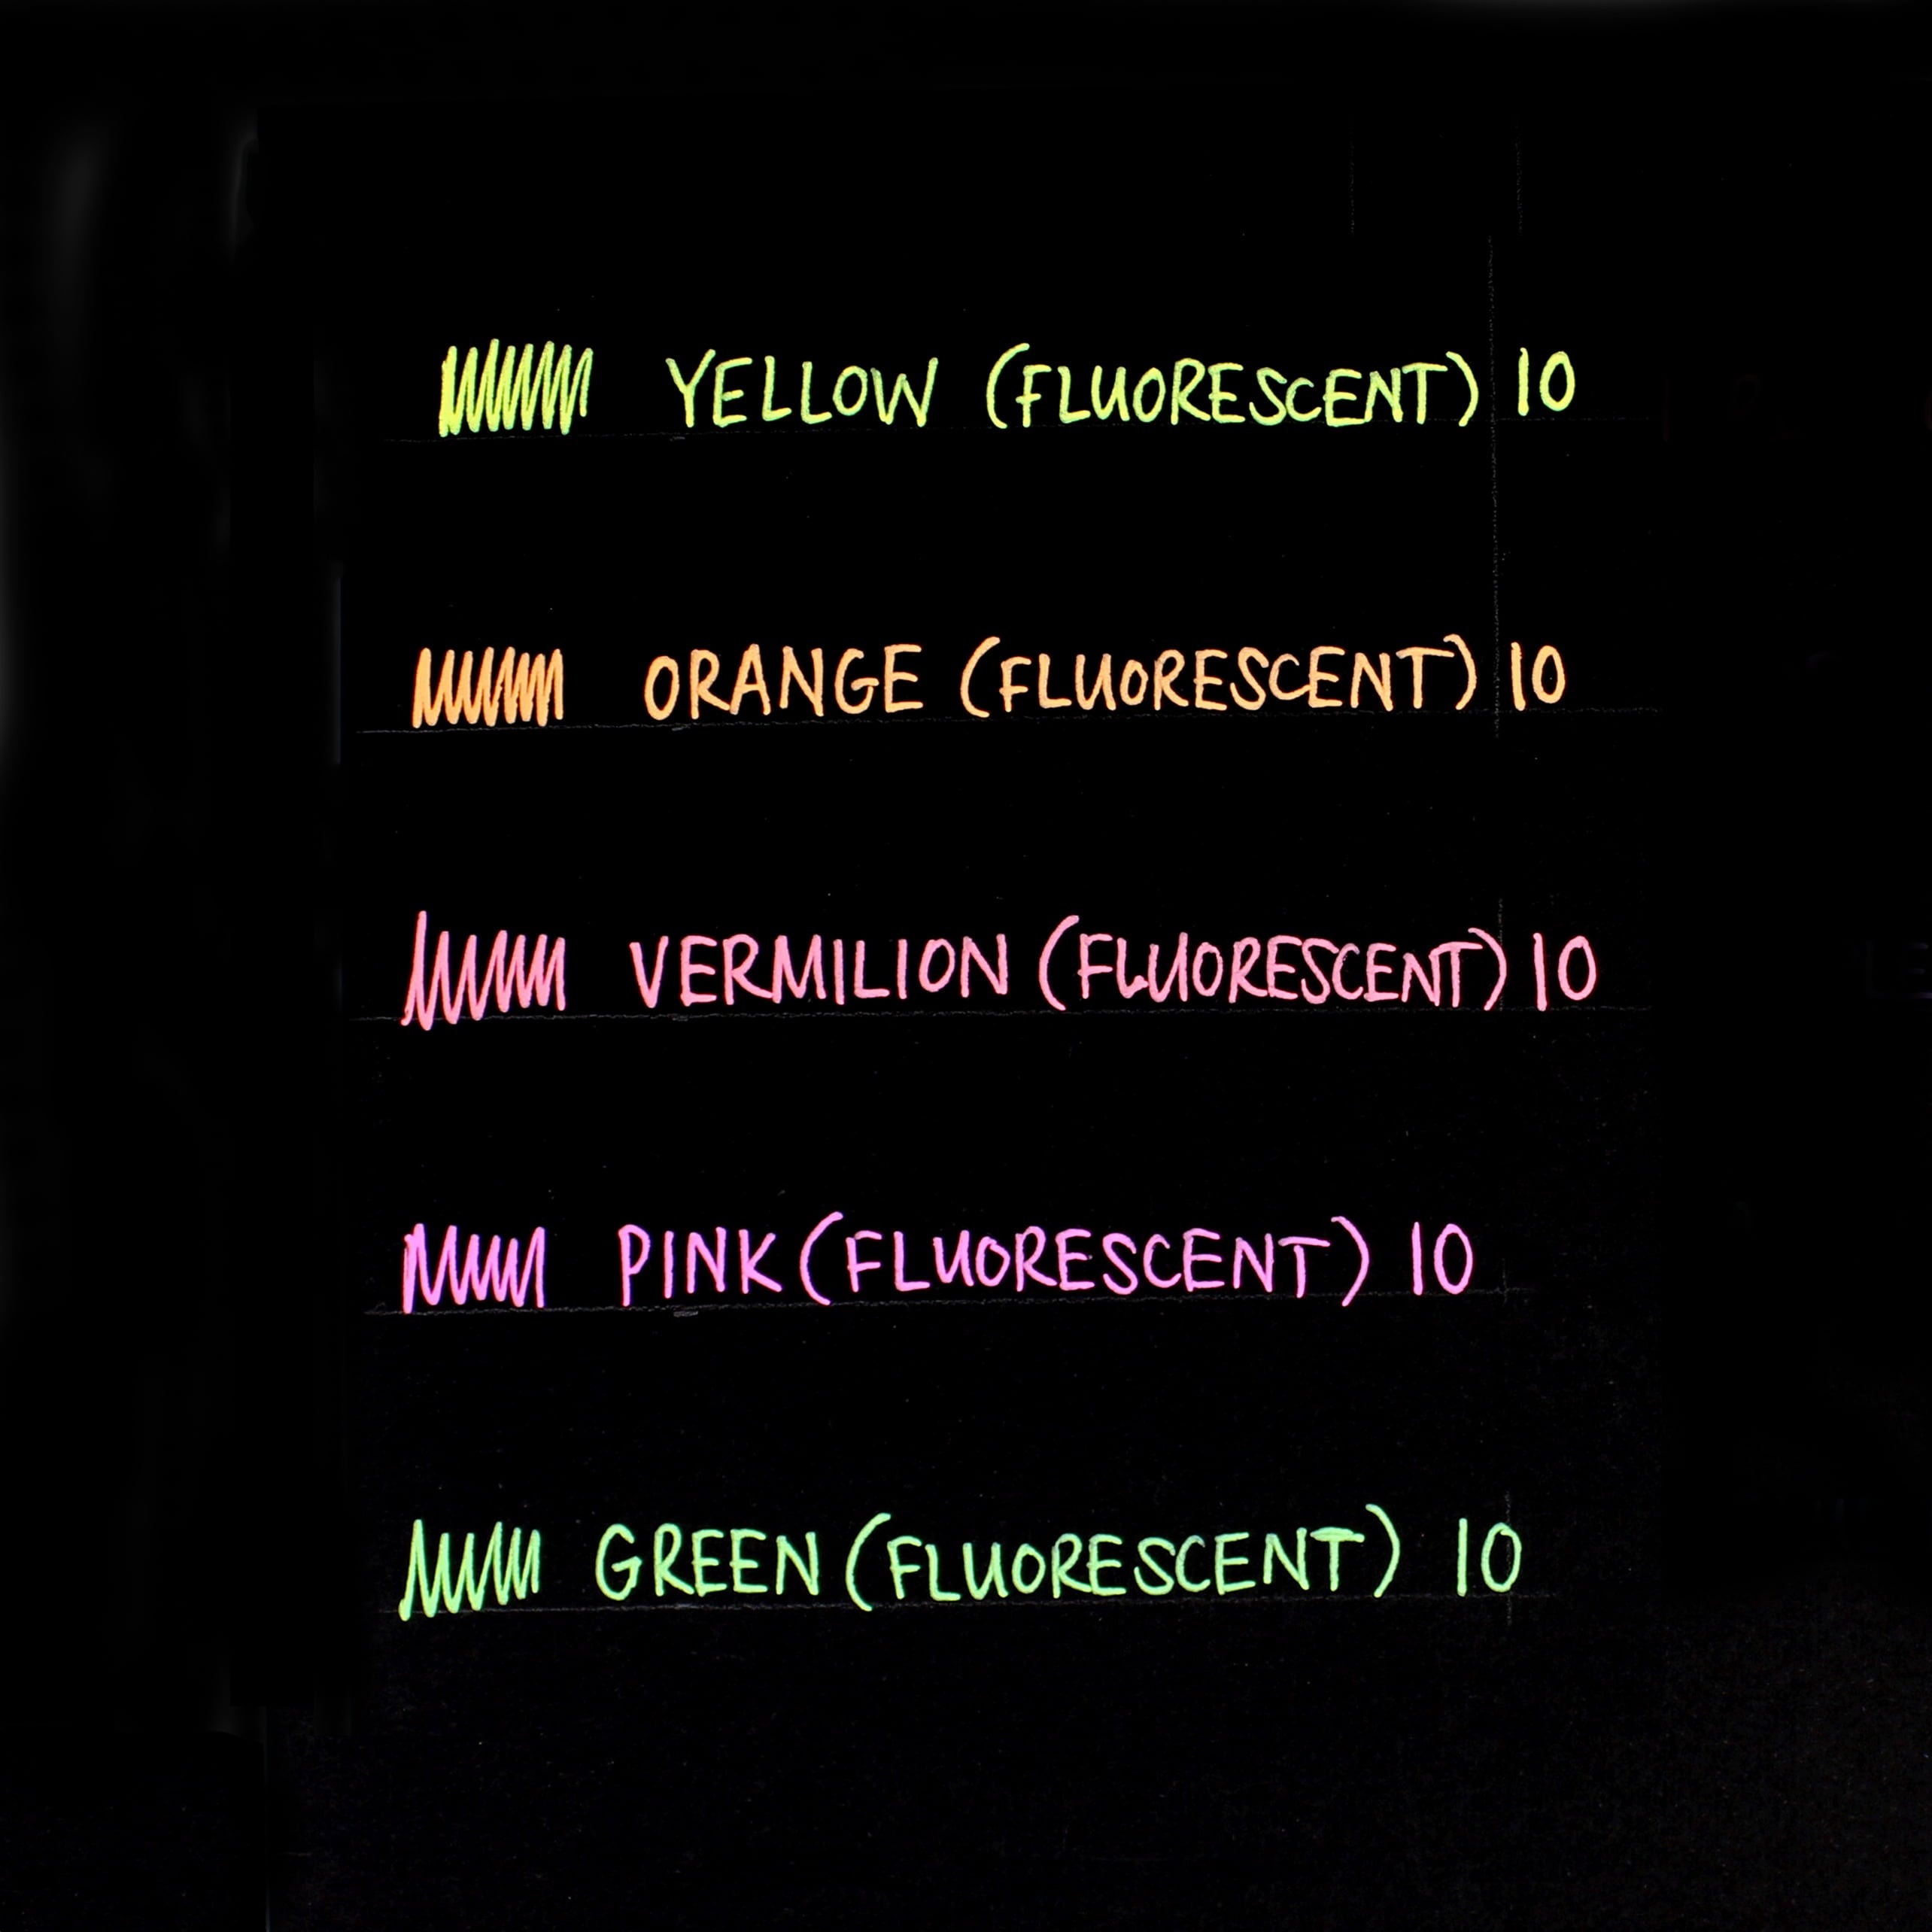 YELLOW (FLUORESCENT) 10
ORANGE (FLUORESCENT) 10
VERMILION (FLUORESCENT) 10
PINK (FLUORESCENT) 10
GREEN (FLUORESCENT) 10